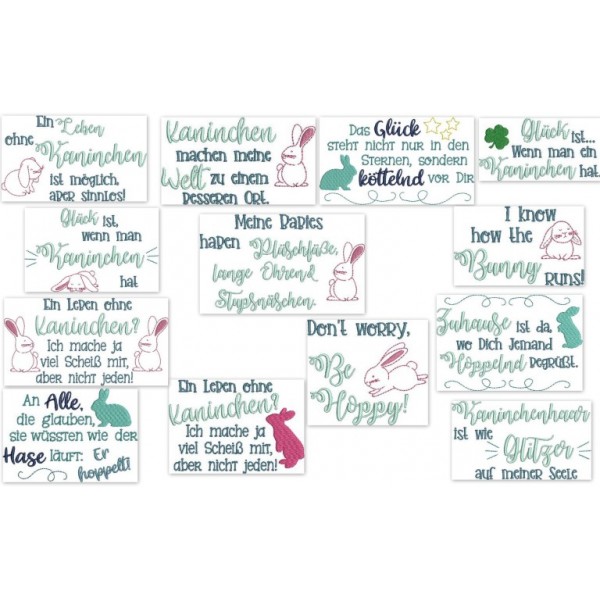 Ein Leben
ohne
Kaninchen
ist möglich,
aber sinnlos!
Kaninchen
machen meine
Welt zu einem
besseren Ort.
Das Glück
steht nicht nur in den
Sternen, sondern
köttelnd vor Dir
Glück
ist...
Wenn man ein
Kaninchen hat.
Glück
ist,
wenn man
Kaninchen
hat
Meine Babies
haben Plüschfüße,
lange Ohren &
Stupsnäschen.
I know
how the
Bunny
runs!
Ein Leben ohne
Kaninchen?
Ich mache ja
viel Scheiß mit,
aber nicht jeden!
Don't worry,
Be
Hoppy!
Zuhause ist da,
wo Dich Jemand
Hoppelnd begrüßt.
An Alle,
die glauben,
sie wüssten wie der
Hase läuft: Er
hoppelt!
Ein Leben ohne
Kaninchen?
Ich mache ja
viel Scheiß mit,
aber nicht jeden!
Kaninchenhaar
ist wie
Glitzer
auf meiner Seele